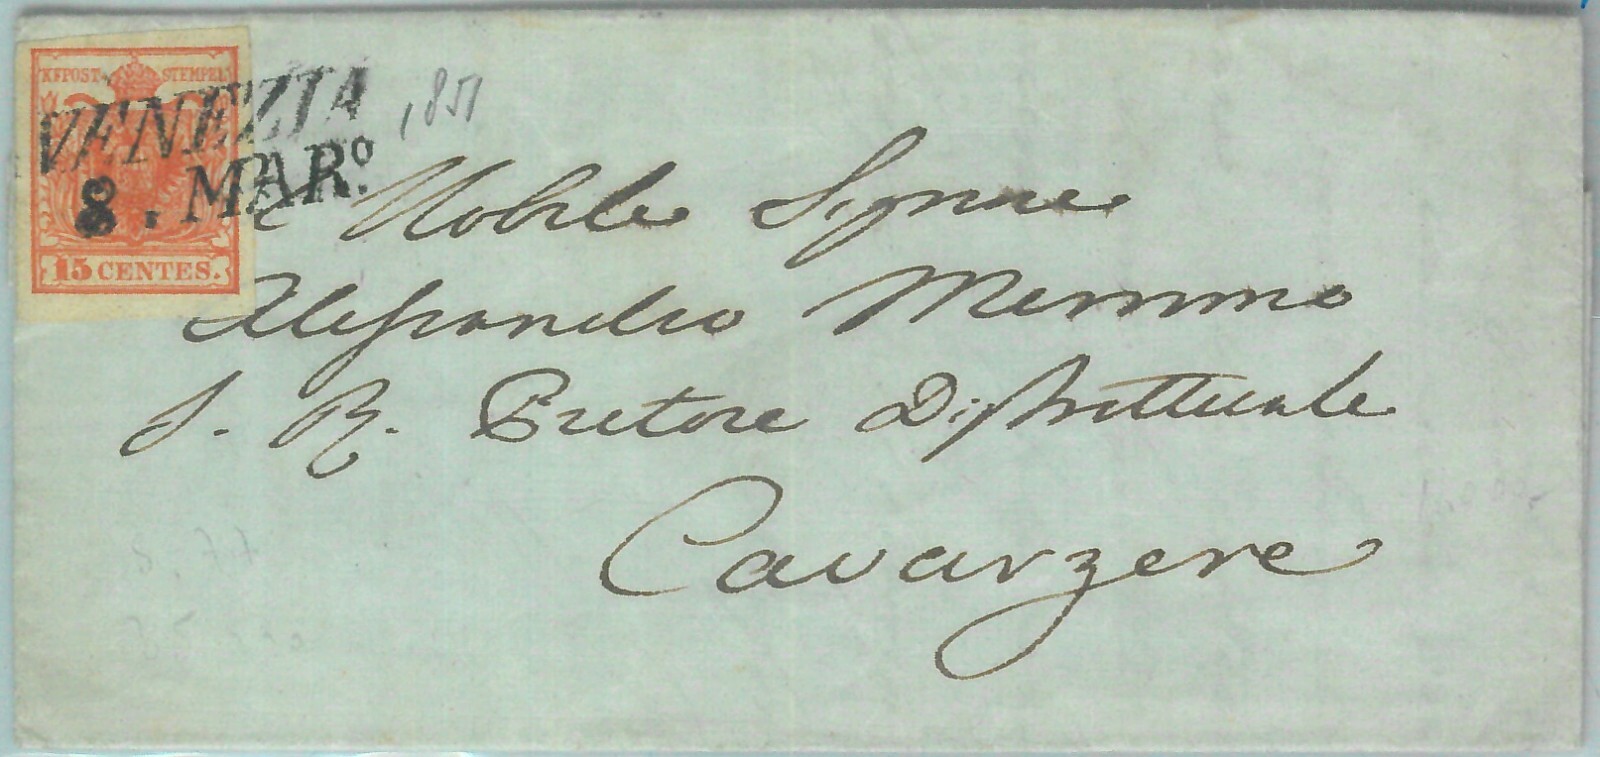 KKPOST STEMPEL
VENEZIA
8. MARº.
1851
15 CENTES.
Nobile Signore
Alessandro Memmo
I. R. Pretore Distrettuale
Cavarzere